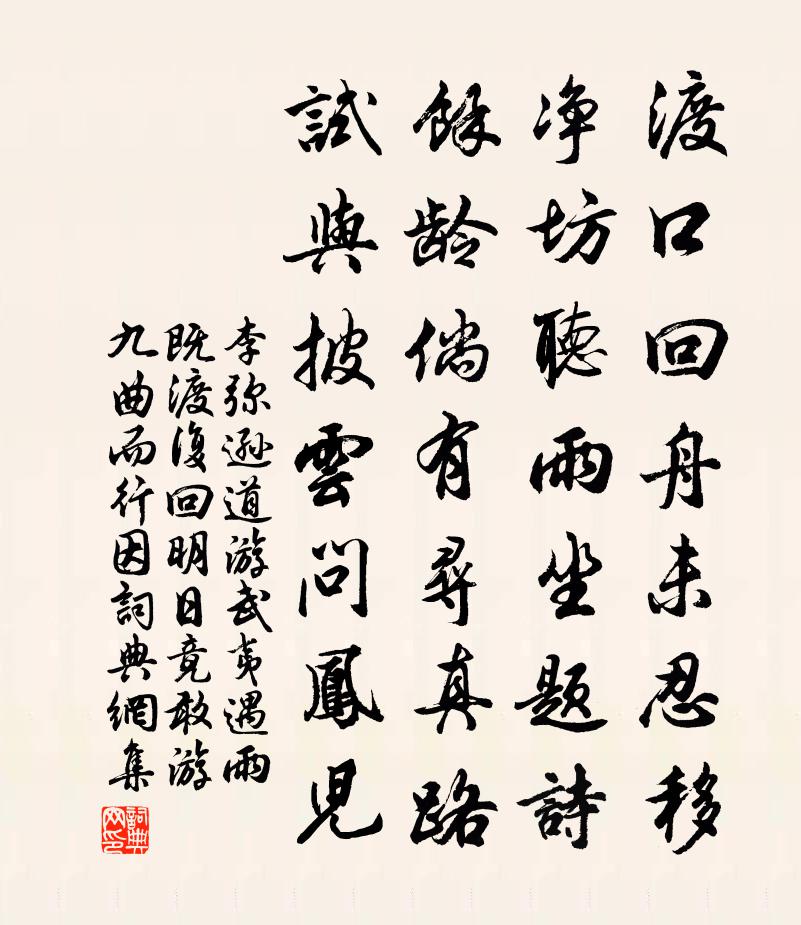 渡口回舟未忍移
净坊聽雨坐题詩
餘龄倘有尋真路
試與披雲問鳳児
李弥逊道游武夷遇雨
既渡復回明日竟敢游
九曲而行因詞典網集
詞典
网印